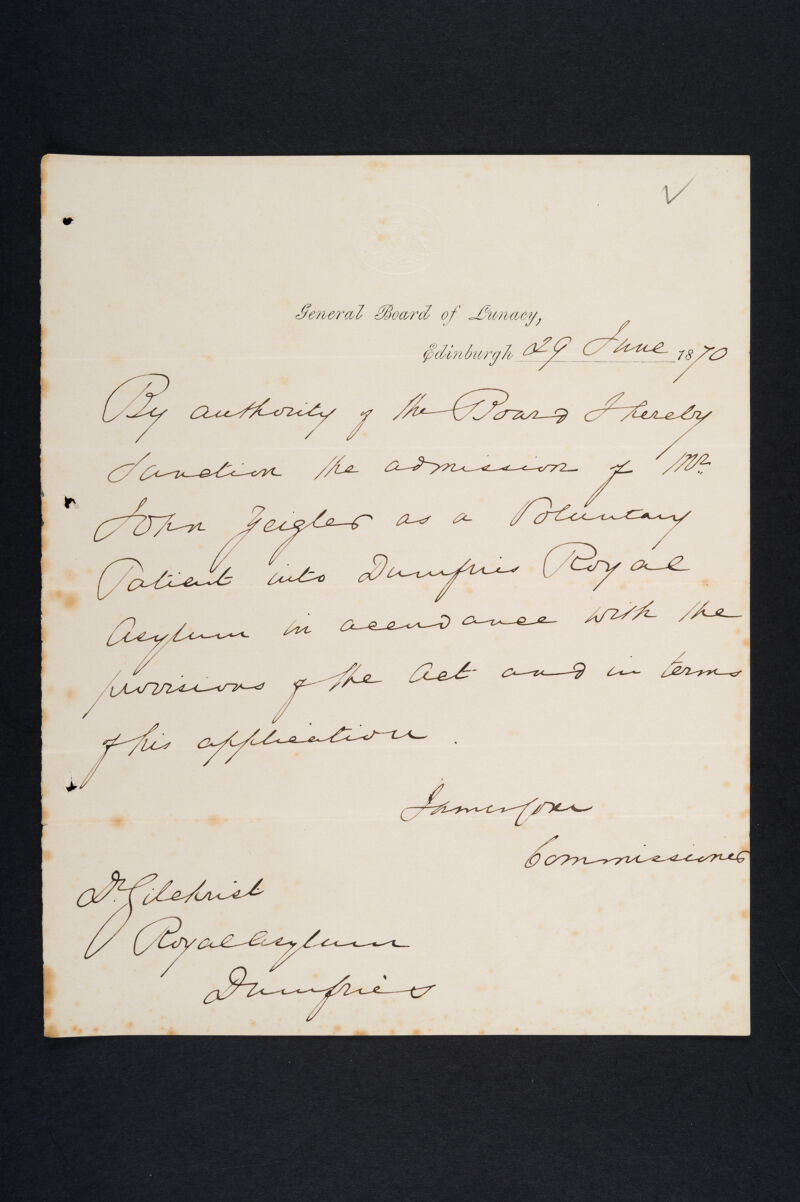 General Board of Lunacy,
Edinburgh 29 June 1870
By authority of the Board I hereby
Sanction the admission of Mr.
John Zeigler as a Voluntary
Patient into Dumfries Royal
Asylum in accordance with the
provisions of the Act and in terms
of his application.
James Coxe
Commissioner
Dr. Gilchrist
Royal Asylum
Dumfries